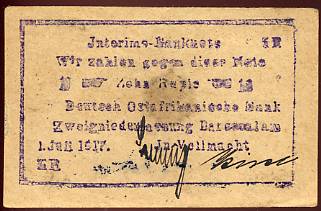 Interims-Banknote ER
Wir zahlen gegen diese Note
10 Zehn Rupie 10
Deutsch Ostafrikanische Bank
Zweigniederlassung Daressalam
1. Juli 1917. In Vollmacht
ER